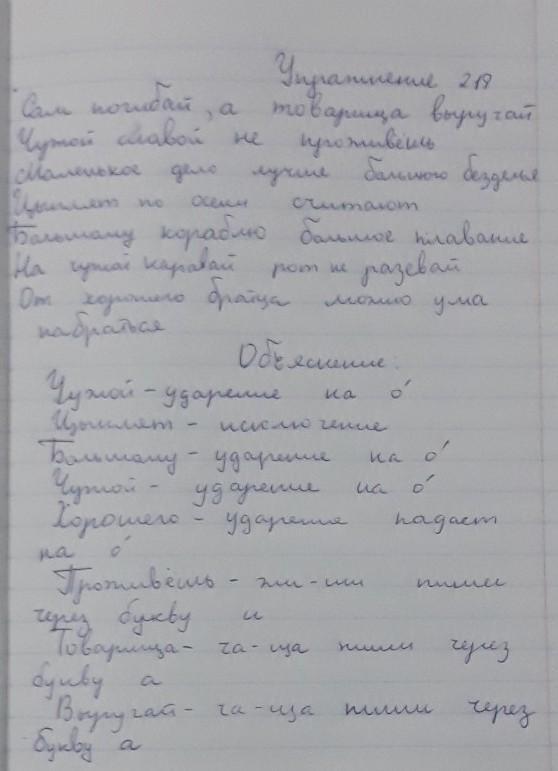 Упражнение 219
Сам погибай, а товарища выручай
Чужой славой не проживёшь
Маленькое дело лучше большого безделья
Цыплят по осени считают
Большому кораблю большое плавание
На чужой каравай рот не разевай
От хорошего братца можно ума
набраться
Объяснение:
Чужой - ударение на о́
Цыплят - исключение
Большому - ударение на о́
Чужой - ударение на о́
Хорошего - ударение падает
на о́
Проживёшь - жи-ши пиши
через букву и
Товарища - ча-ща пиши через
букву а
Выручай - ча-ща пиши через
букву а